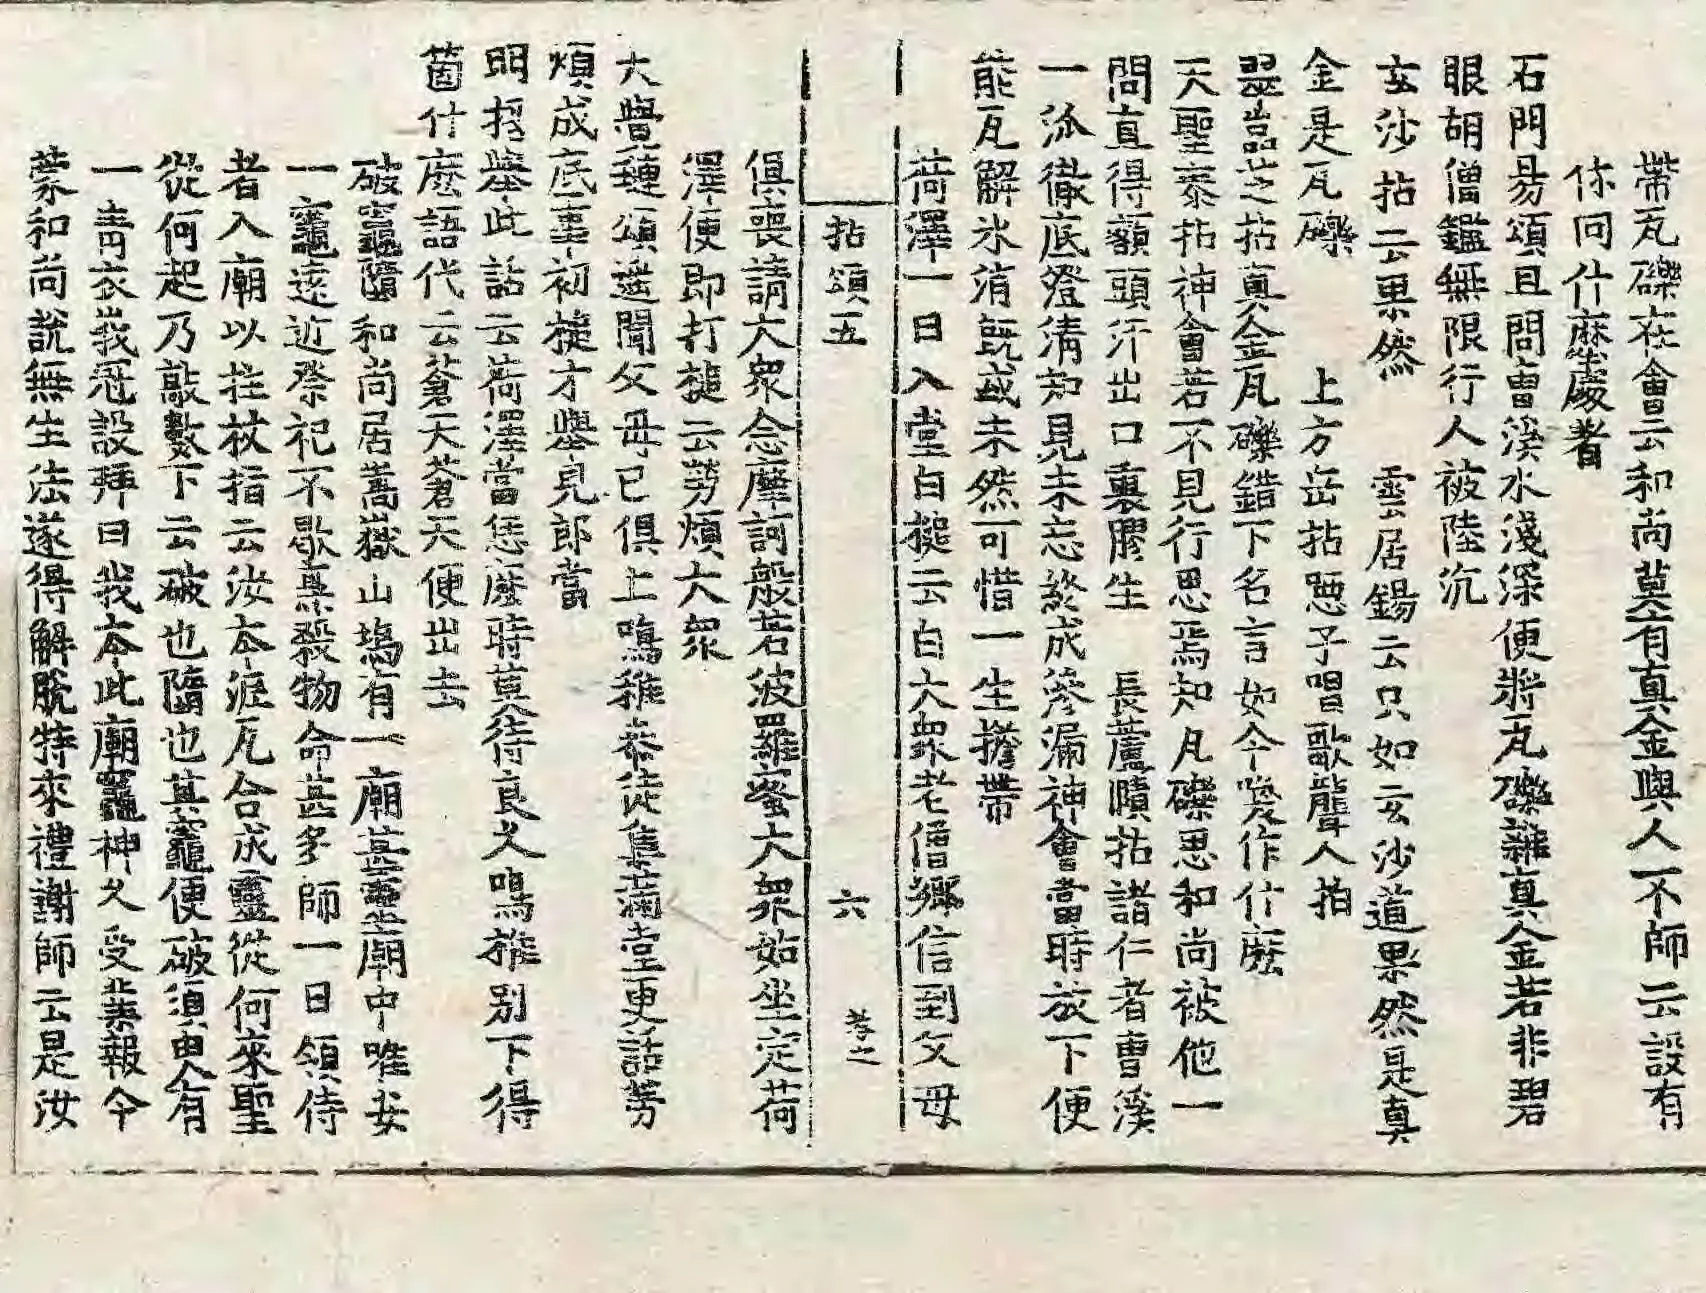 帶瓦礫在會云和尚莫有真金與人不師云設有
你向什麽處著
石門易頌且問曺溪水淺深便將瓦礫雜真金若非碧
眼胡僧鑑無限行人被陸沉
玄沙拈云果然 雲居錫云只如玄沙道果然是真
金是瓦礫 上方岳拈啞子唱歌聾人拍
翠嵓芝拈真金瓦礫錯下名言如今喚作什麽
天聖泰拈神會若不見行思焉知凡礫思和尚被他一
問直得額頭汗出口裏膠生 長蘆賾拈諸仁者曺溪
一派徹底澄淸知見未忘終成滲漏神會當時放下便
能瓦解氷消旣或未然可惜一生擔帶
荷澤一日入堂白槌云白大衆老僧鄕信到父母
拈頌五 六 孝之
俱喪請大衆念摩訶般若波羅蜜大衆始坐定荷
澤便即打槌云勞煩大衆
大覺璉頌遥聞父母已俱亡鳴椎恭徒集滿堂更話勞
煩成底事初槌才擧見郎當
明招擧此話云荷澤當恁麽時莫待良久鳴椎別下得
箇什麽語代云蒼天蒼天便出去
破竈墮和尚居嵩嶽山塢有一廟甚靈廟中唯安
一竈遠近祭祀不歇烹殺物命甚多師一日領侍
者入廟以拄杖指云汝本泥瓦合成靈從何來聖
從何起乃敲數下云破也墮也其竈便破須臾有
一靑衣峩冠設拜曰我本此廟竈神久受業報今
蒙和尚說無生法遂得解脫特來禮謝師云是汝